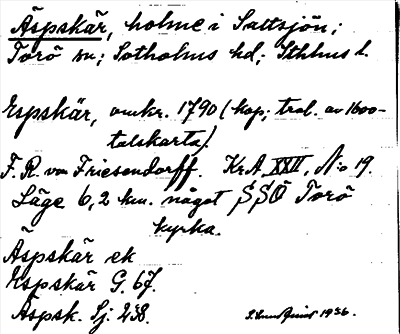 Äspskär, holme i Saltsjön;
Torö sn; Sotholms hd; Sthlms l.
Espskär, omkr. 1790 (kop; trol. av 1600-
talskarta).
F. R. von Friesendorff. KrA XXII, N:o 19.
Läge 6,2 km. något SSÖ Torö
kyrka.
Äspskär ek
Espskär G. 67.
Äspsk. Sj. 238.
1936.